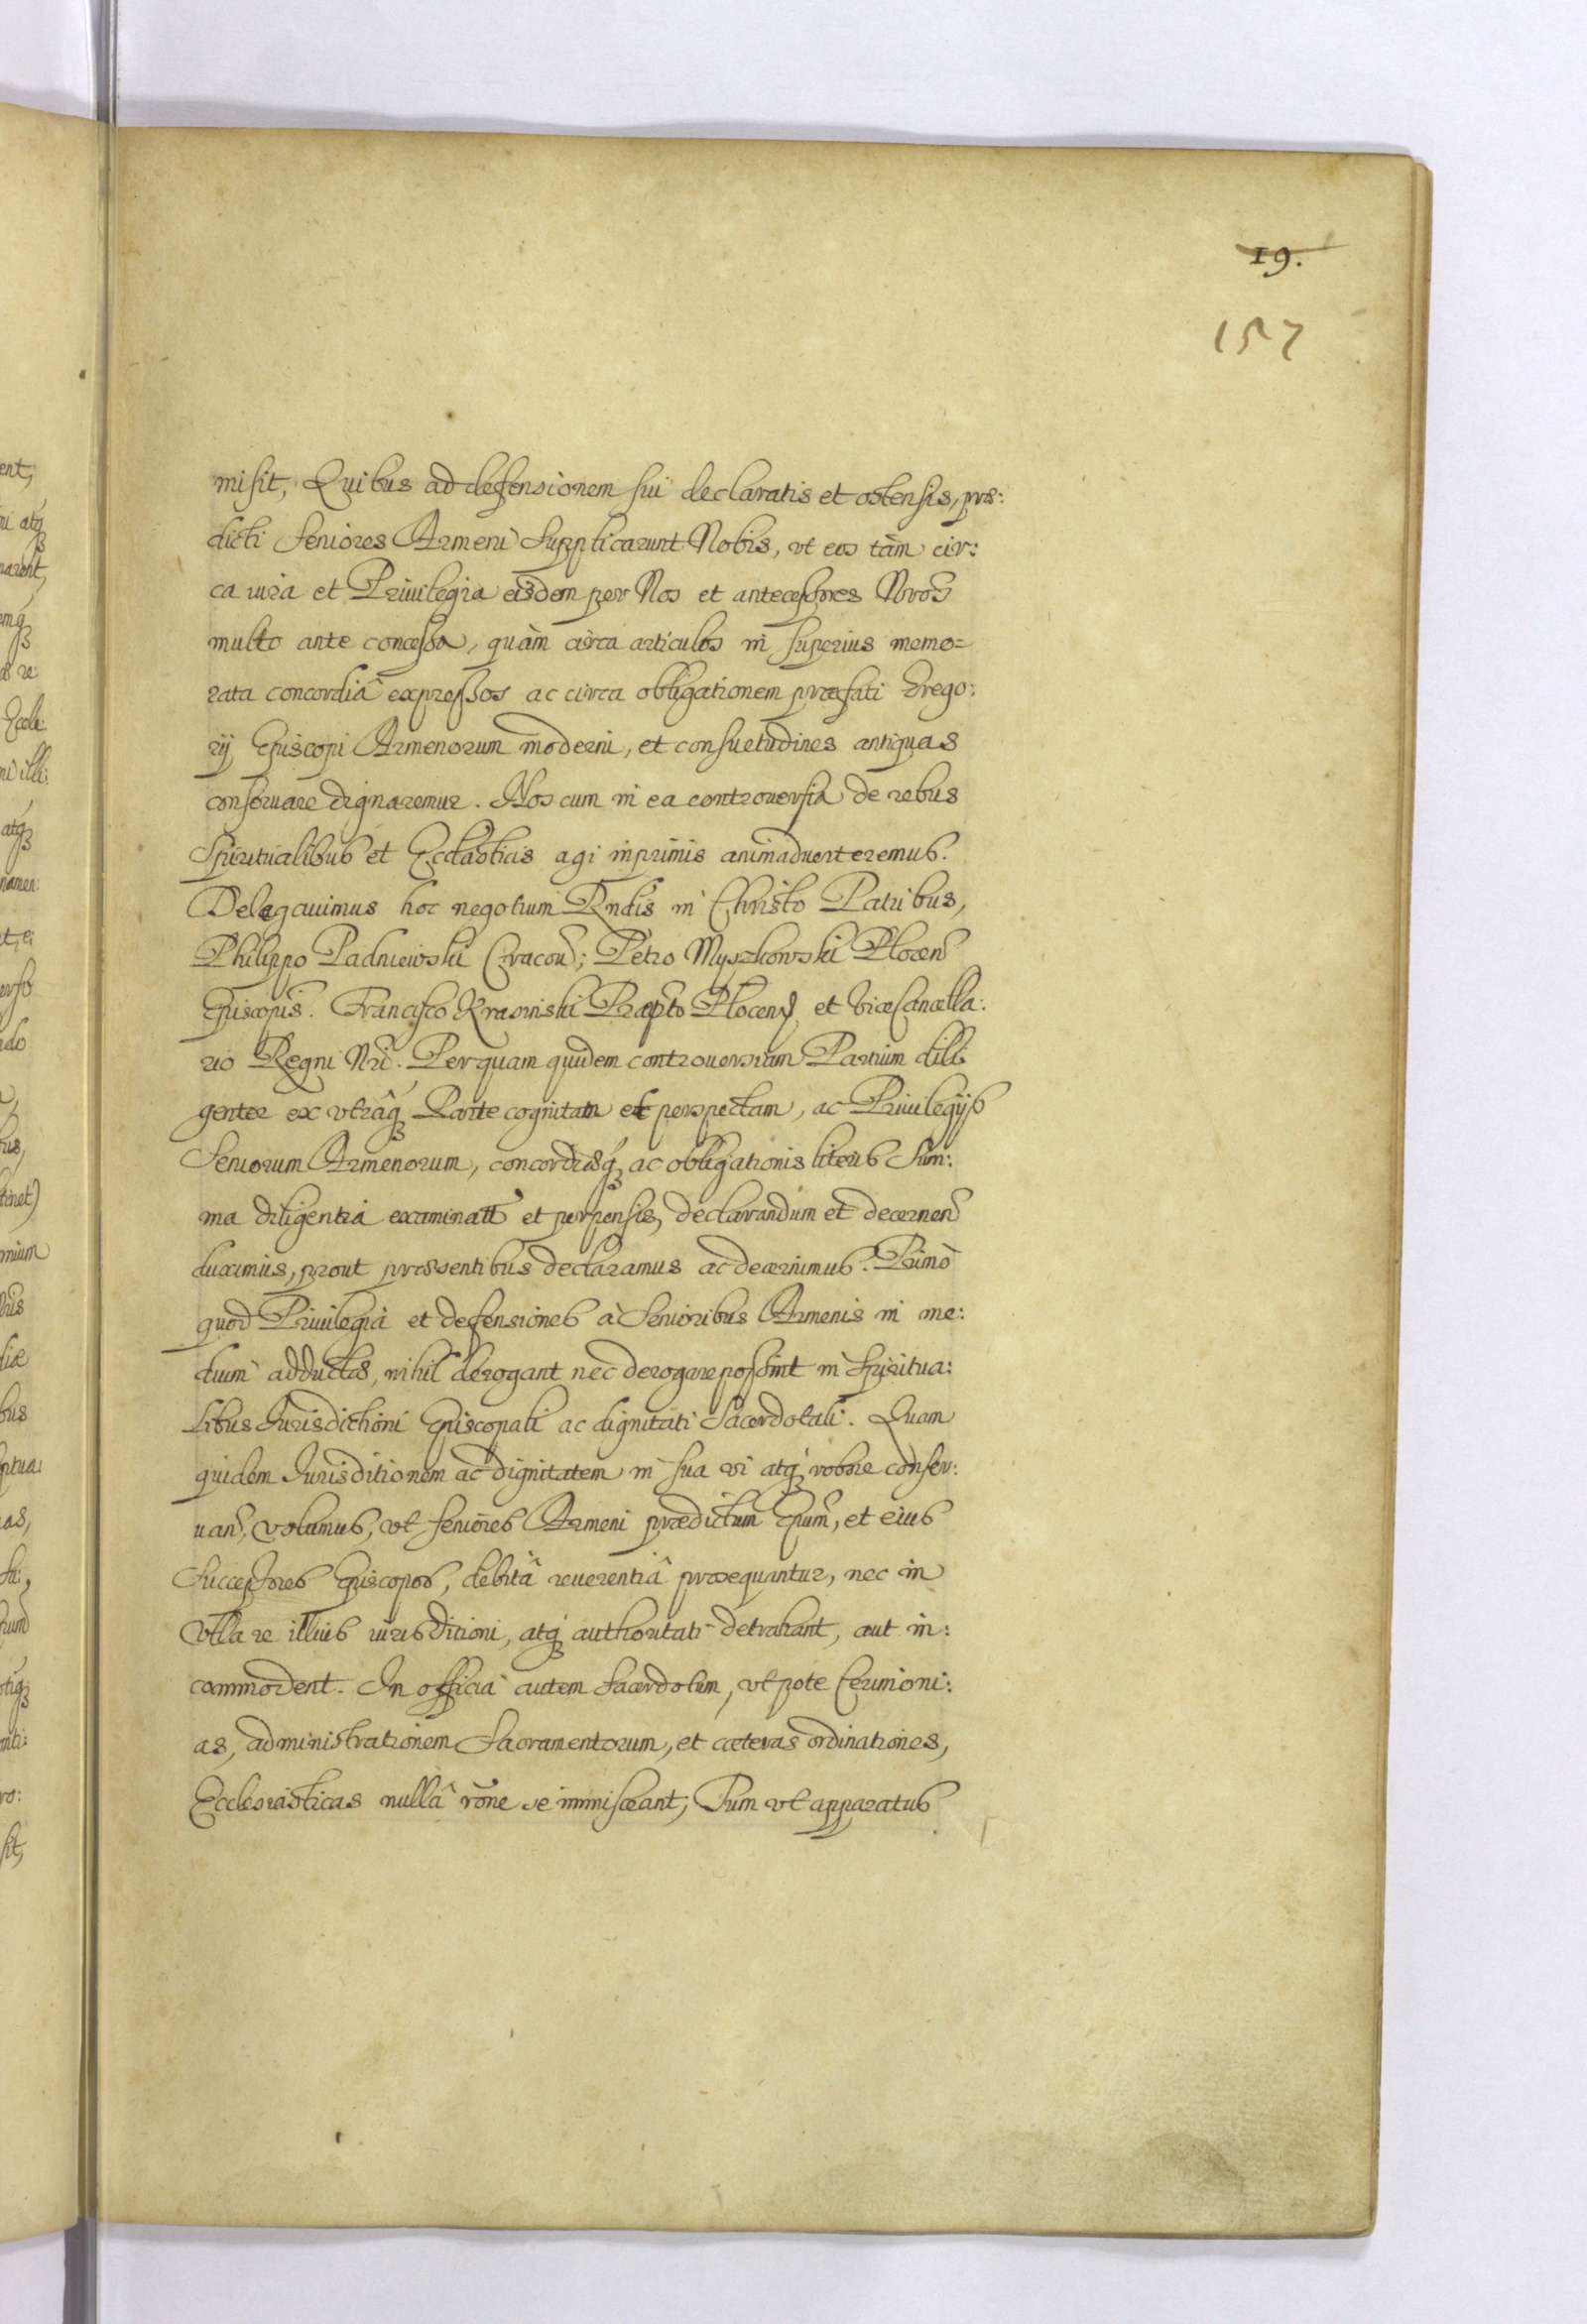 19.
157
misit, Quibus ad defensionem sui declaratis et ostensis, præ:
dicti Seniores Armeni Supplicarunt Nobis, vt eos tàm cir:
ca iura et Priuilegia eisdem per Nos et antecessores Nros
multo ante concessa, quàm circa articulos in superius memo=
rata concordiâ expressos ac circa obligationem præfati Grego:
rij Episcopi Armenorum moderni, et consuetudines antiquas
conseruare dignaremur. Nos cum in ea controuersia de rebus
Spiritualibus et Ecclãsticis agi inprimis animaduerteremus.
Delegauimus hoc negotium Rndis in Christo Patribus,
Philippo Padniewski Cracoń; Petro Myszkowski Plocen̄
Episcopis. Francisco Krasinski Præpto Plocen̄ et Vicecancella:
rio Regni Nri. Per quam quidem controuersiam Partium dili
genter ex vtrâq́ Parte cognitam et perspectam, ac Priuilegijs
Seniorum Armenorum, concordiæq́ ac obligationis literis Sum:
ma diligentia examinatis et perpensis, declarandum et decernen̄
duximus, prout præsentibus declaramus ac decernimus. Primò
quod Priuilegia et defensiones à Senioribus Armenis in me:
dium adductas, nihil derogant nec derogare possint in Spiritua:
libus Iurisdictioni Episcopali ac dignitati Sacerdotali. Quam
quidem Iurisditionem ac dignitatem in sua vi atq́ robore conser:
uan̄, volumus, vt seniores Armeni prædictum Epum̄, et eius
Successores Episcopos, debitâ reuerentiâ prosequantur, nec in
vlla re illius iurisditioni, atq́ authoritati detrahant, aut in:
commodent. In officia autem sacerdotum, vtpote Cerimoni:
as, administrationem Sacramentorum, et cæteras ordinationes,
Ecclesiasticas nullâ rōne se immisceant, Tum vt apparatus